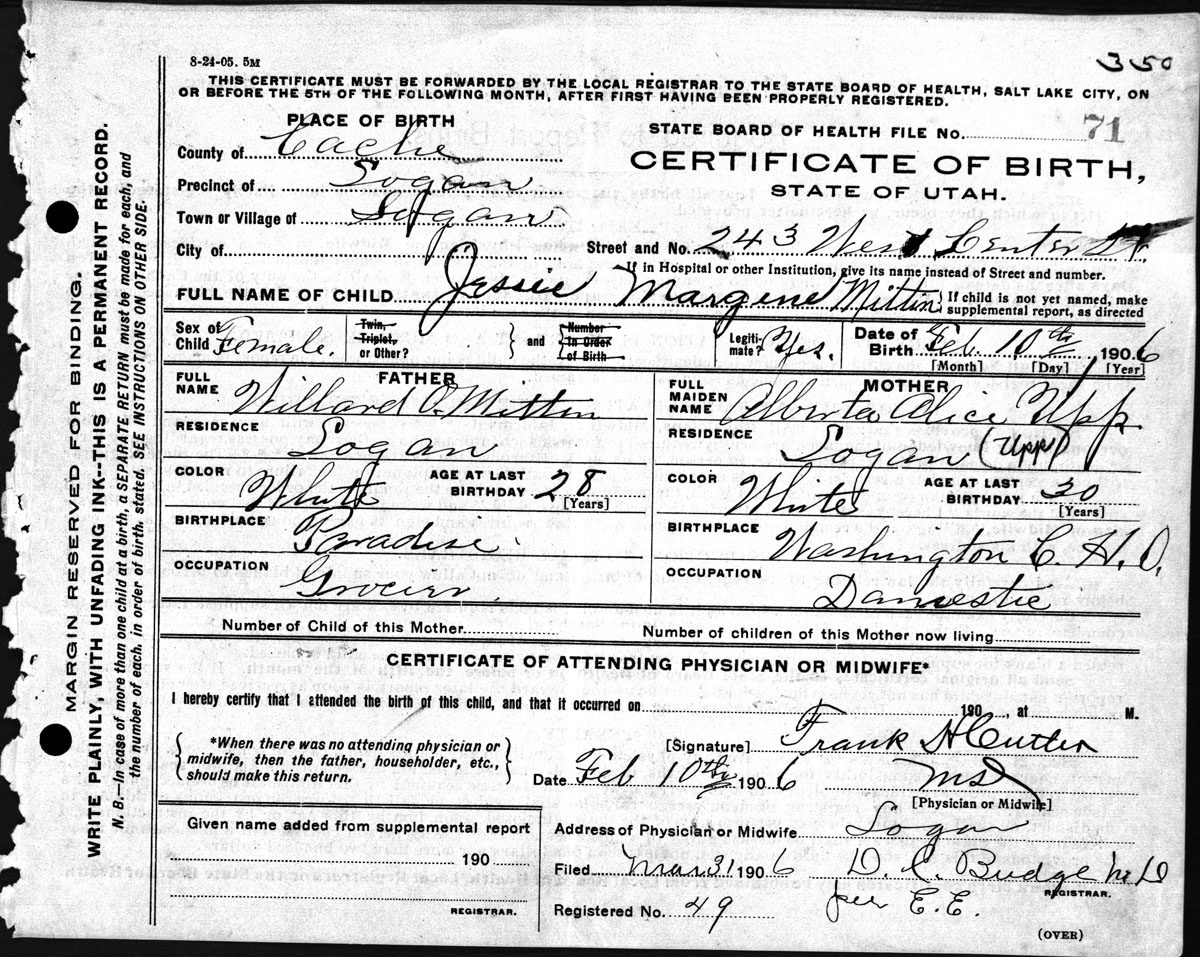 350
8-24-05. 5M
THIS CERTIFICATE MUST BE FORWARDED BY THE LOCAL REGISTRAR TO THE STATE BOARD OF HEALTH, SALT LAKE CITY, ON
OR BEFORE THE 5TH OF THE FOLLOWING MONTH, AFTER FIRST HAVING BEEN PROPERLY REGISTERED.
PLACE OF BIRTH
STATE BOARD OF HEALTH FILE No. 71
County of Cache
CERTIFICATE OF BIRTH,
Precinct of Logan
STATE OF UTAH.
Town or Village of Logan
City of
Street and No. 243 West Center St.
If in Hospital or other Institution, give its name instead of Street and number.
FULL NAME OF CHILD Jessie Margene Mitton
} If child is not yet named, make
supplemental report, as directed
Sex of
Child Female.
Twin,
Triplet,
or Other?
} and {
Number
In Order
of Birth
Legiti-
mate? Yes.
Date of
Birth Feb. 10th, 1906
[Month] [Day] [Year]
FATHER
FULL
NAME Willard O. Mitton
RESIDENCE
Logan
COLOR
White
AGE AT LAST
BIRTHDAY 28
[Years]
BIRTHPLACE
Paradise.
OCCUPATION
Grocer.
MOTHER
FULL
MAIDEN
NAME Alberta Alice Upp.
RESIDENCE
Logan (Upp)
COLOR
White
AGE AT LAST
BIRTHDAY 30
[Years]
BIRTHPLACE
Washington C. H. O.
OCCUPATION
Domestic
Number of Child of this Mother
Number of children of this Mother now living
CERTIFICATE OF ATTENDING PHYSICIAN OR MIDWIFE*
I hereby certify that I attended the birth of this child, and that it occurred on 190 , at M.
{ *When there was no attending physician or
midwife, then the father, householder, etc.,
should make this return. }
[Signature] Frank H Cutler
Date Feb 10th 1906
MD
[Physician or Midwife]
Given name added from supplemental report
190
REGISTRAR.
Address of Physician or Midwife Logan
Filed Mar 31 1906 D. C. Budge M D
REGISTRAR.
Registered No. 49 per E.E.
(OVER)
MARGIN RESERVED FOR BINDING.
WRITE PLAINLY, WITH UNFADING INK--THIS IS A PERMANENT RECORD.
N. B.—In case of more than one child at a birth, a SEPARATE RETURN must be made for each, and
the number of each, in order of birth, stated. SEE INSTRUCTIONS ON OTHER SIDE.